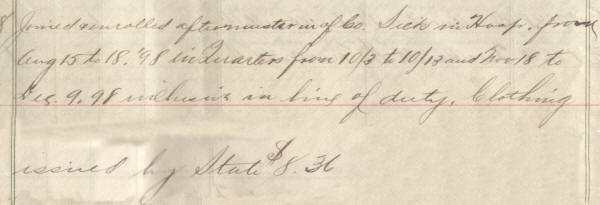 Joined & enrolled after muster in of Co. Sick in Hosp. from
Aug 15 to 18. '98 in Quarters from 10/3 to 10/13 and Nov 18 to
Dec. 9. 98 inclusive in line of duty. Clothing
issued by State $8.36